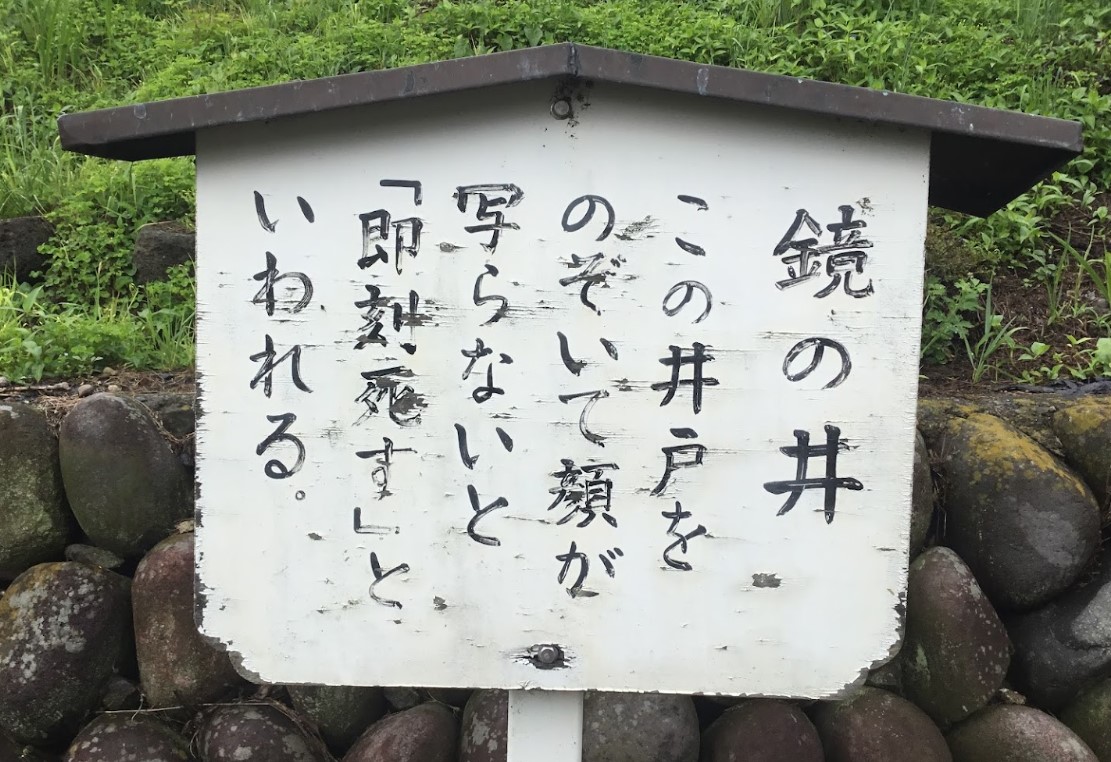 鏡の井
この井戸を
のぞいて顔が
写らないと
「即刻死す」と
いわれる。